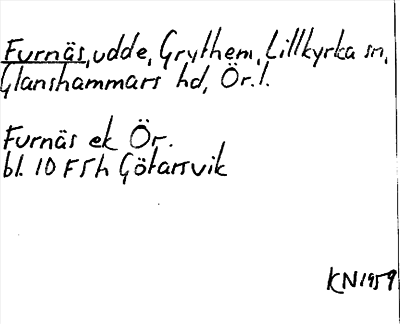 Furnäs, udde, Grythem, Lillkyrka sn,
Glanshammars hd, Ör. l.
Furnäs ek Ör.
bl. 10 F 5 h Götarsvik
KN 1959